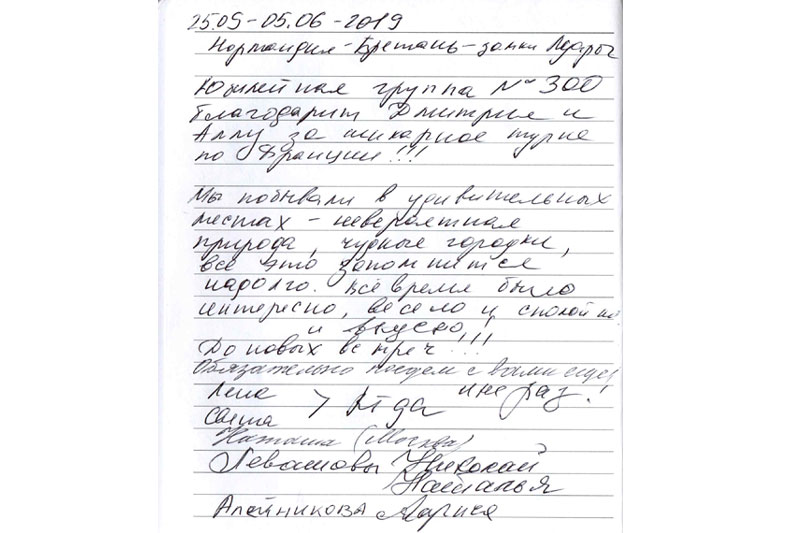 25.05-05.06-2019
Нормандия-Бретань-замки Луары
Юбилейная группа № 300
благодарит Дмитрия и
Аллу за шикарное турне
по Франции!!!
Мы побывали в удивительных
местах - невероятная
природа, чудные городки,
всё это запомнится
надолго. Всё время было
интересно, весело и спокойно
и вкусно!
До новых встреч!!!
Обязательно поедем с вами еще
и не раз!
Лена
Света > Rīga
Наташа (Москва)
Левашовы Николай
Наталья
Алейникова Лариса